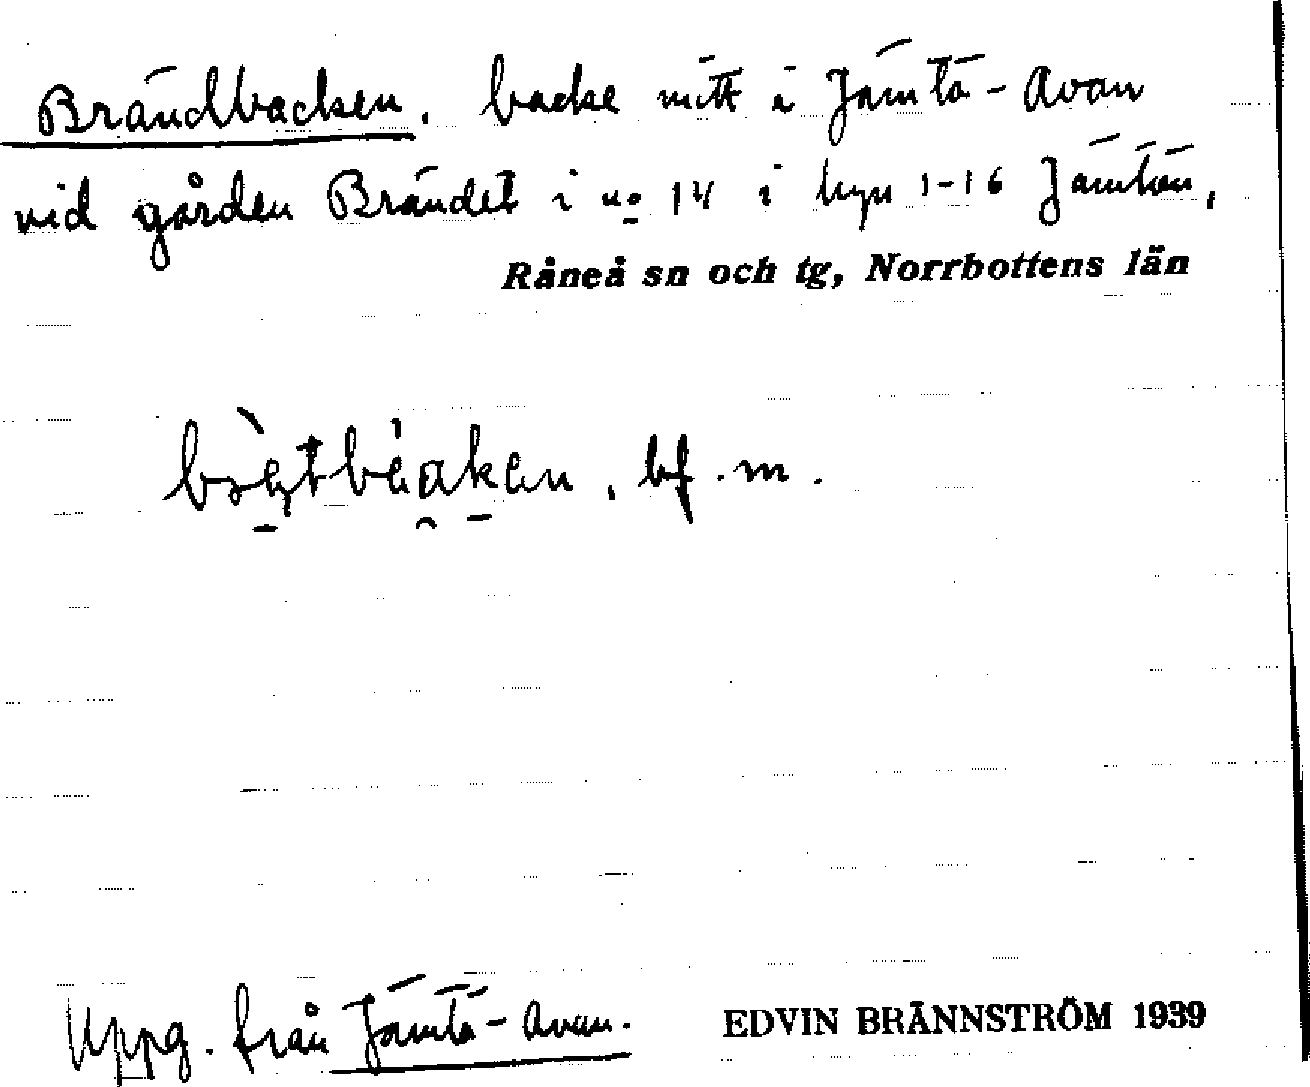 Brändbacken. backe mitt i Jämtö-Avan
vid gården Brändet i no 14 i byn 1-16 Jämtön,
Råneå sn och tg, Norrbottens län
bf. m.
Uppg. från Jämtö-Avan.
EDVIN BRÄNNSTRÖM 1939